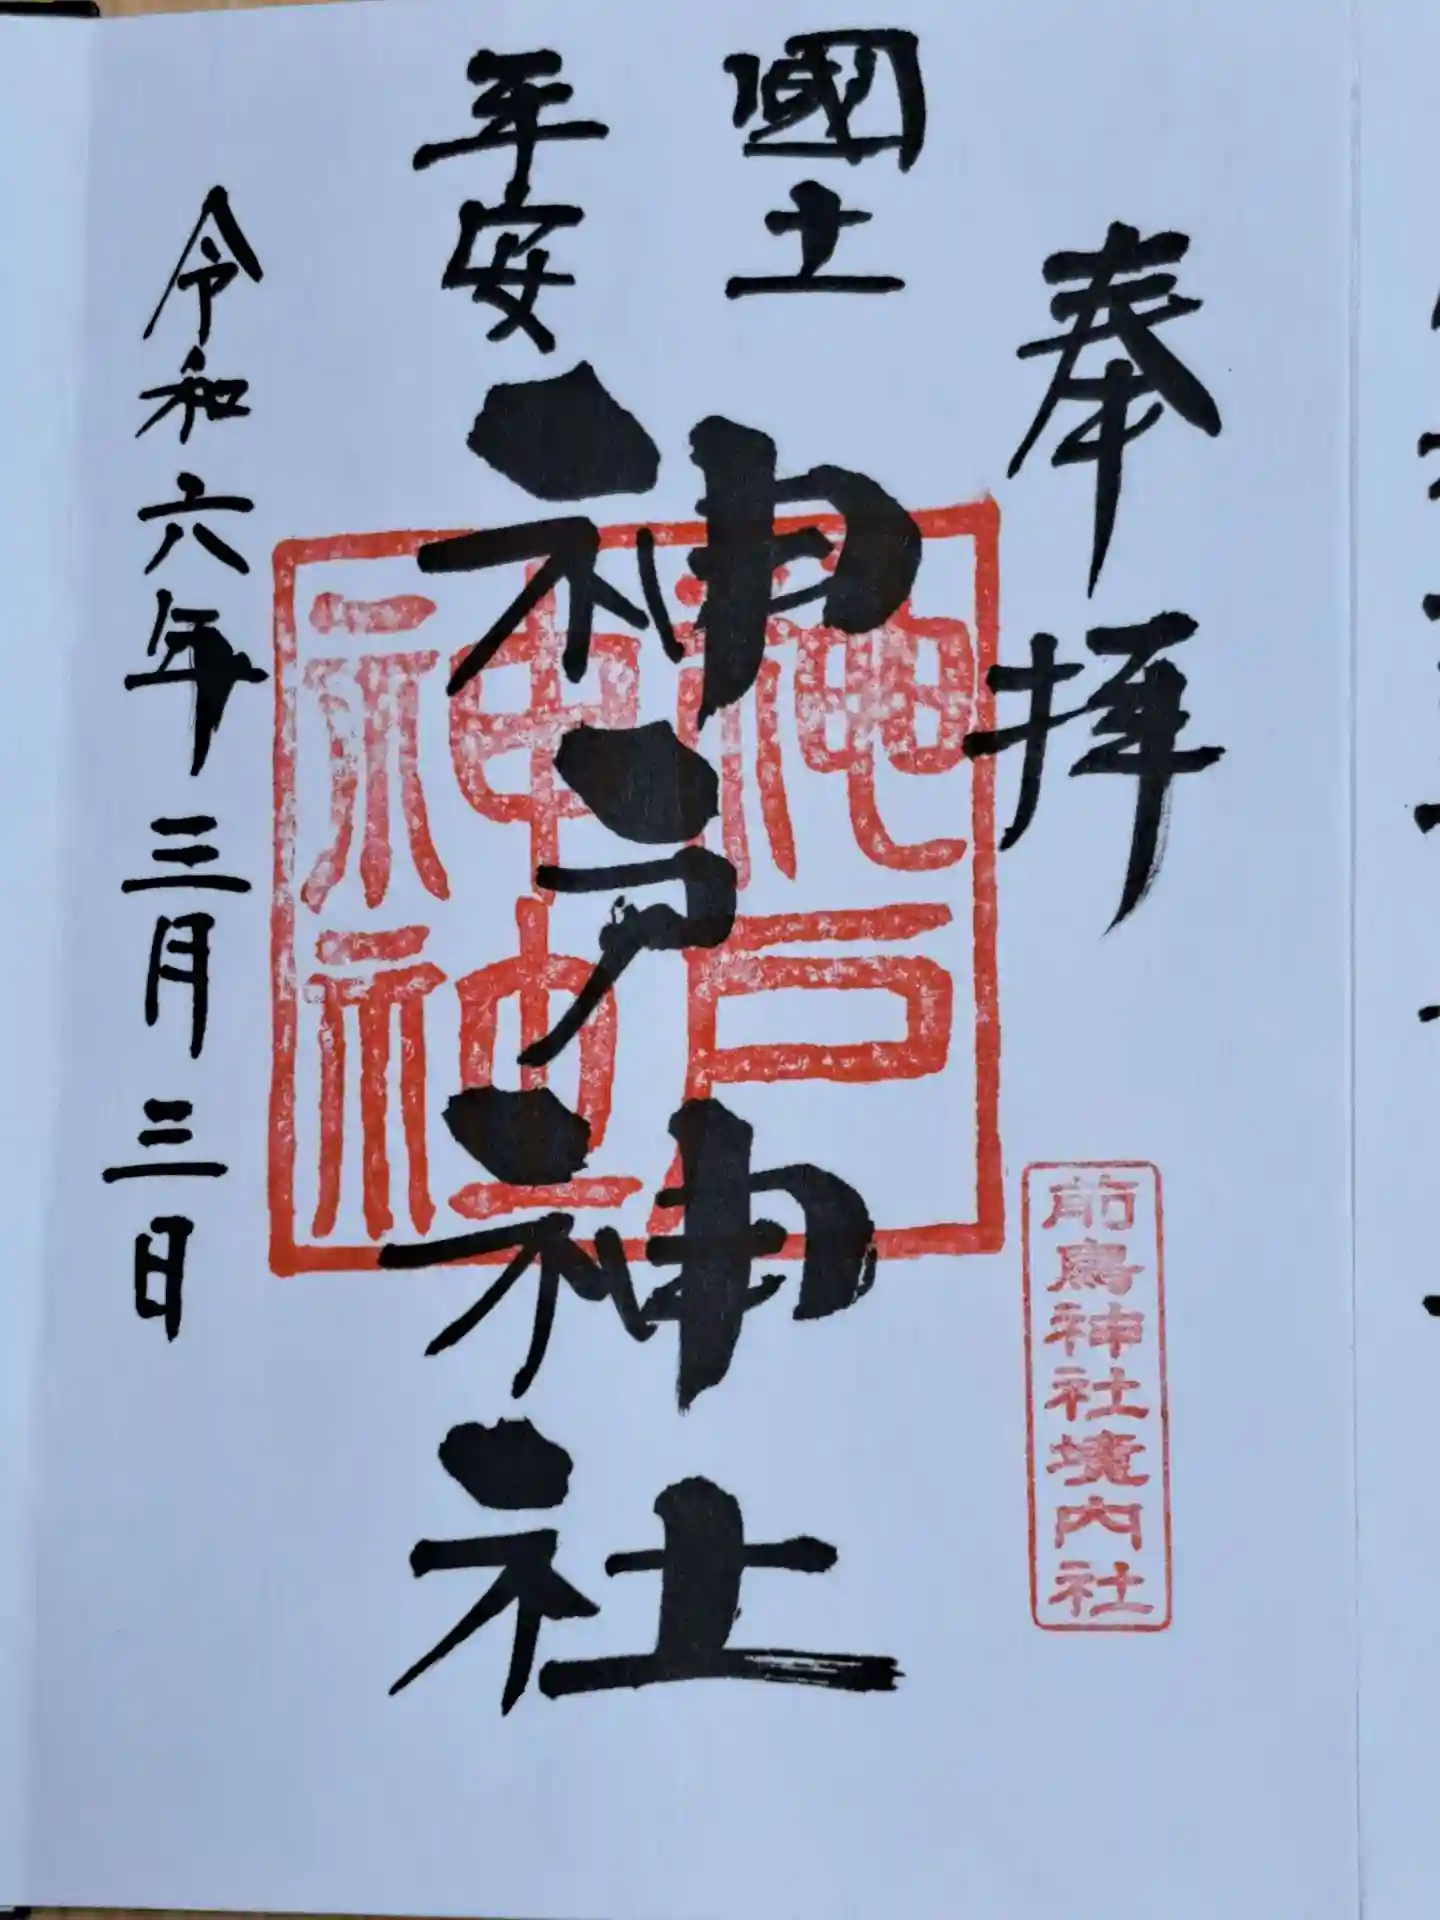 奉拝
前鳥神社境内社
國土
平安
神戸神社
神戸
神社
令和六年三月三日